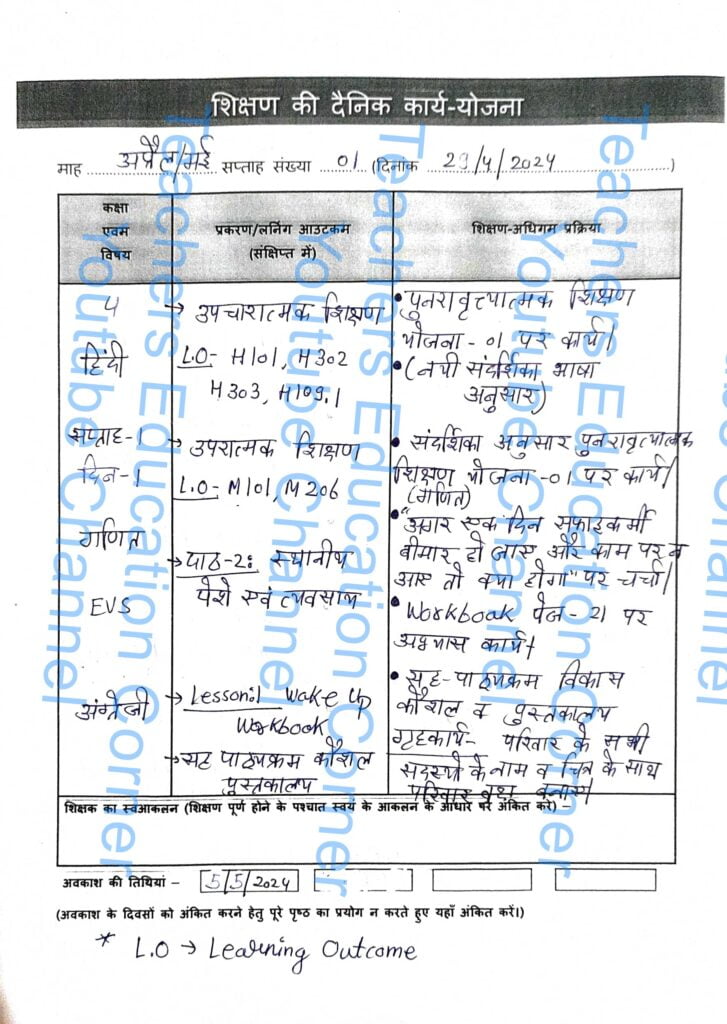 शिक्षण की दैनिक कार्य-योजना
माह अप्रैल/मई सप्ताह संख्या 01 (दिनांक 29/4/2024)
कक्षा
एवम
विषय
प्रकरण/लर्निंग आउटकम
(संक्षिप्त में)
शिक्षण-अधिगम प्रक्रिया
4
हिंदी
सप्ताह-1
दिन-1
गणित
EVS
अंग्रेजी
→ उपचारात्मक शिक्षण
L.O- H101, H302
H303, H109.1
→ उपरात्मक शिक्षण
L.O- M101, M206
→ पाठ-2: स्थानीय
पेशे एवं व्यवसाय
→ Lesson:1 Wake Up
Workbook
→ सह पाठ्यक्रम कौशल
पुस्तकालय
• पुनरावृत्यात्मक शिक्षण
योजना-01 पर कार्य।
• (नयी संदर्शिका भाषा
अनुसार)
• संदर्शिका अनुसार पुनरावृत्यात्मक
शिक्षण योजना-01 पर कार्य।
(गणित)
• "अगर एक दिन सफाईकर्मी
बीमार हो जाए और काम पर न
आए तो क्या होगा" पर चर्चा।
• Workbook पेज-21 पर
अभ्यास कार्य।
• सह-पाठ्यक्रम विकास
कौशल व पुस्तकालय
गृहकार्य- परिवार के सभी
सदस्यों के नाम व चित्र के साथ
परिवार वृक्ष बनाएं।
शिक्षक का स्वआकलन (शिक्षण पूर्ण होने के पश्चात स्वयं के आकलन के आधार पर अंकित करे) –
अवकाश की तिथियां – 5/5/2024
(अवकाश के दिवसों को अंकित करने हेतु पूरे पृष्ठ का प्रयोग न करते हुए यहाँ अंकित करें।)
* L.O → Learning Outcome
Teachers Education Corner
Youtube Channel
Teachers Education Corner
Youtube Channel
Teachers Education Corner
Youtube Channel